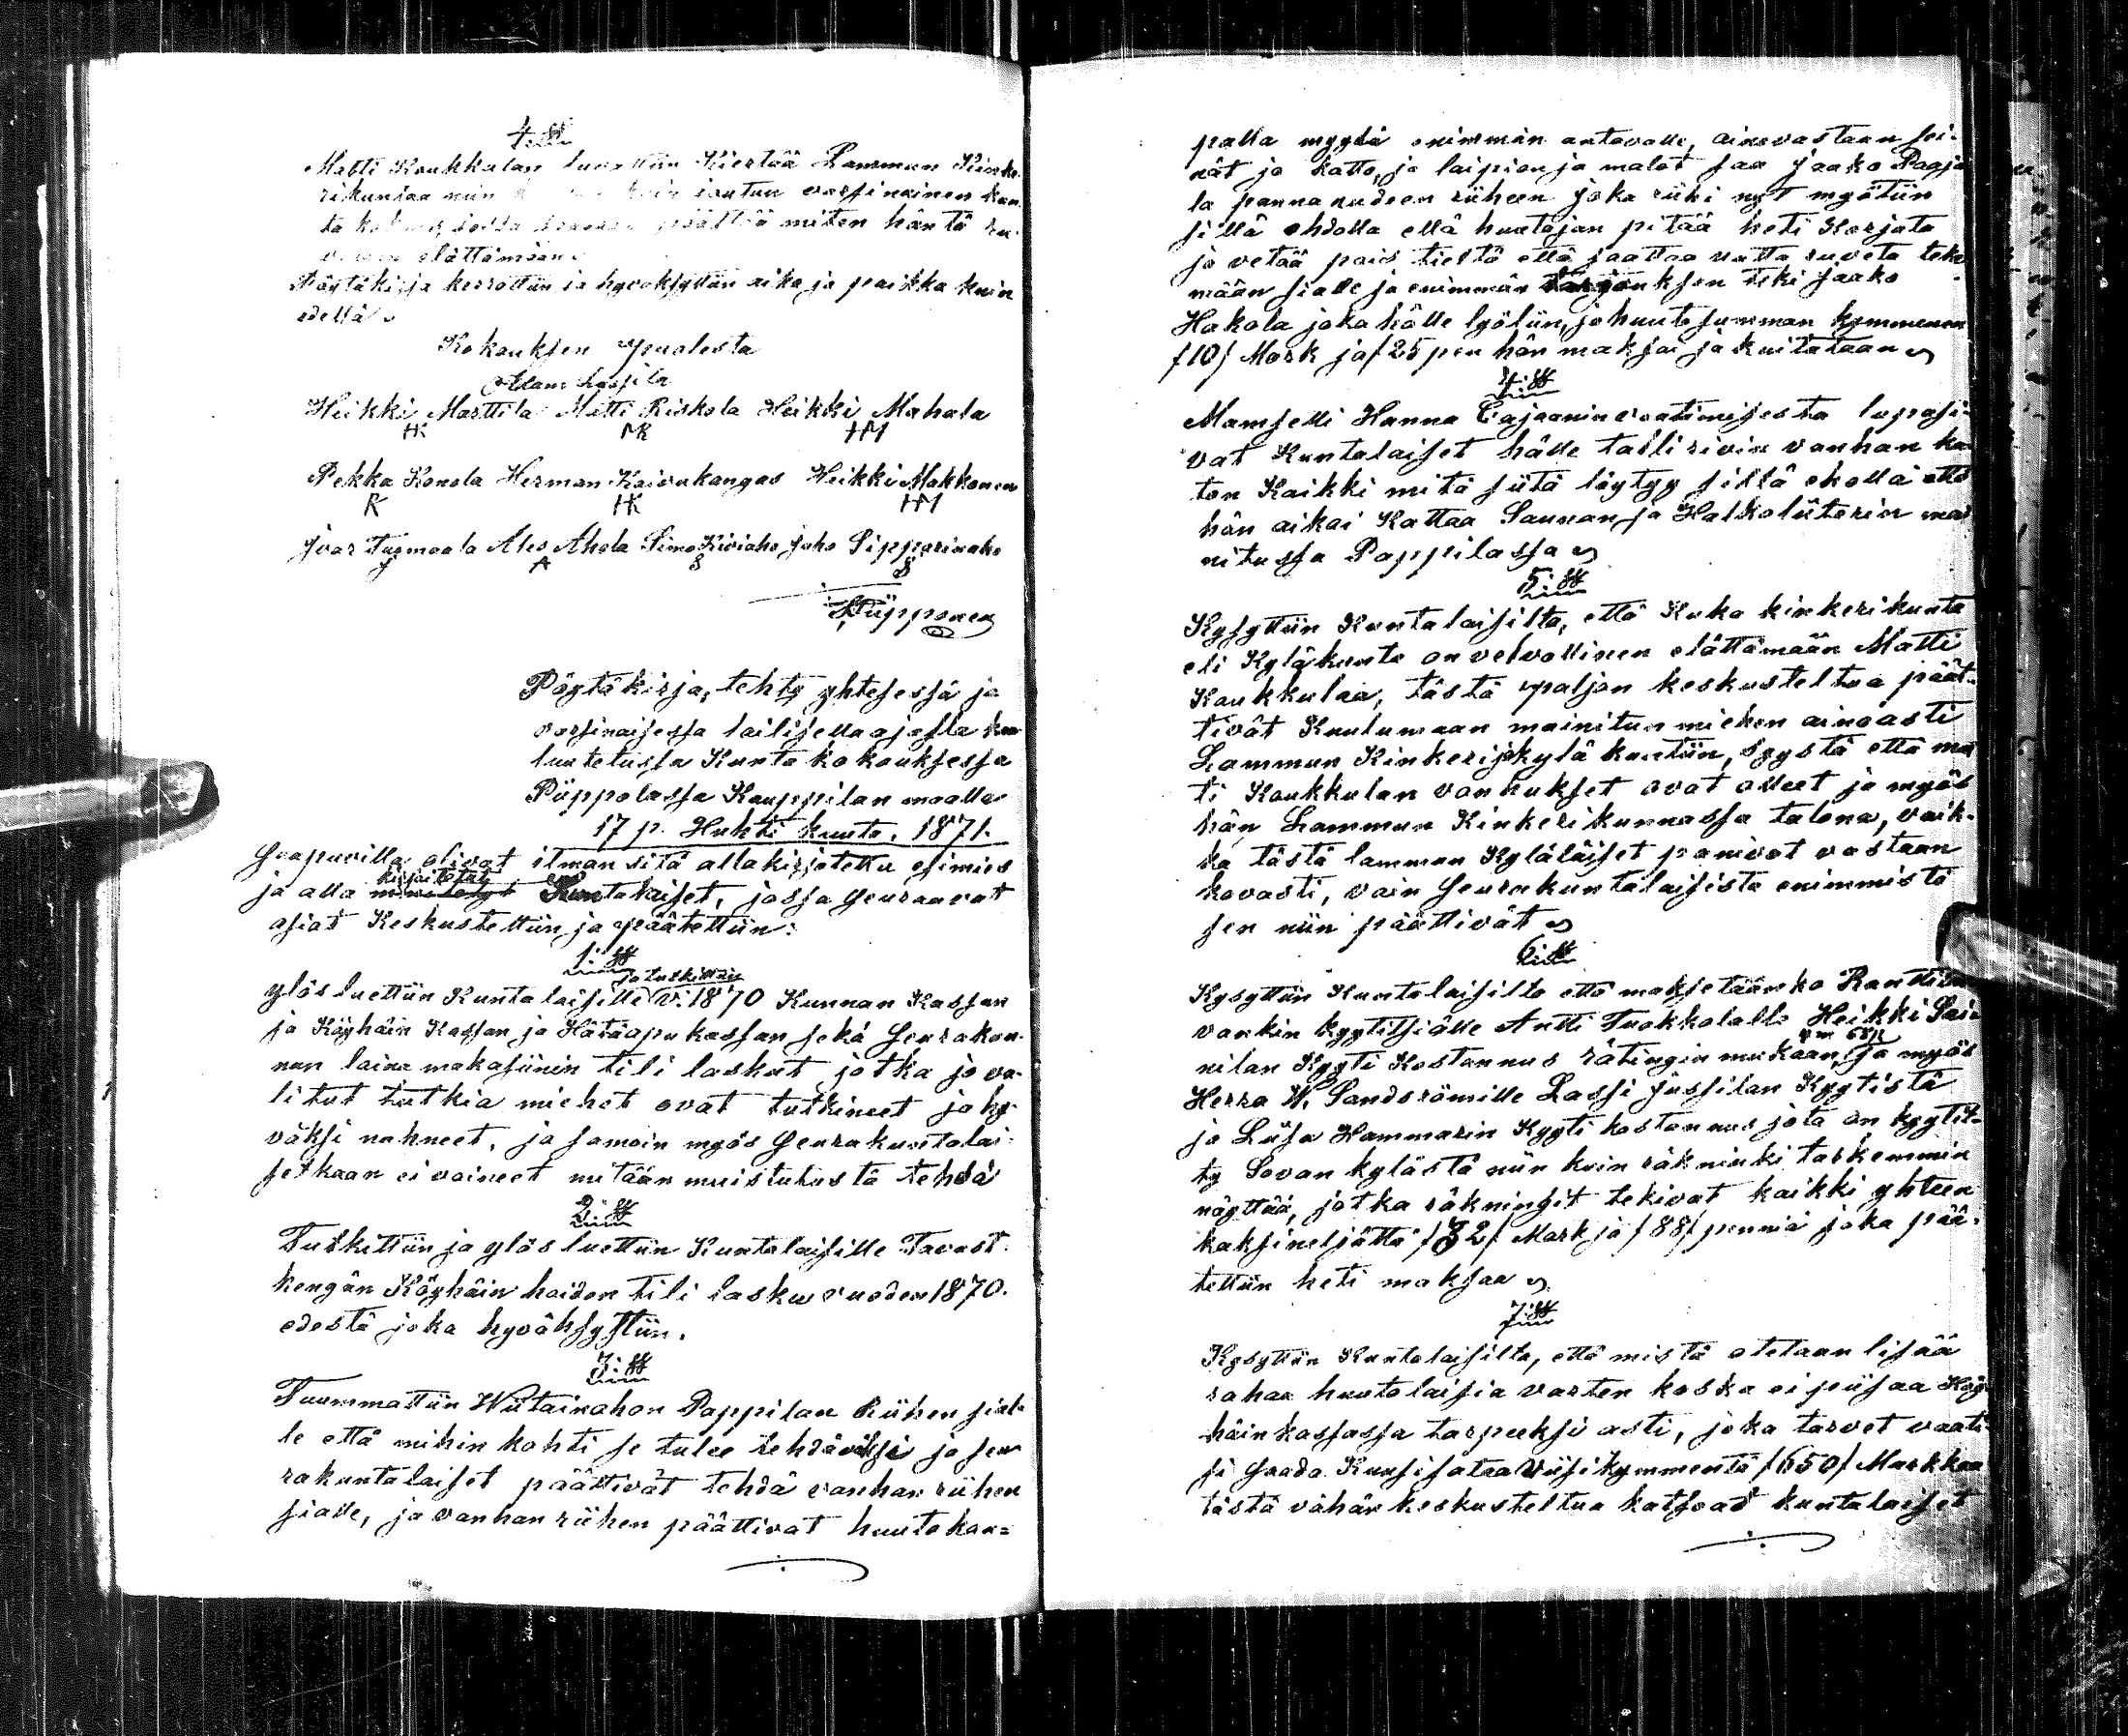 4:§§
Matti Koukkulan luvattiin Kiertää Lamman Kinke-
rikuntaa niin varsinainen kun-
ta päättää miten häntä ru-
elättämään.
Pöytäkirja kerrottiin ja hyväksyttiin aika ja paikka kuin
edellä.
Kokouksen puolesta
Heikki Marttila Matti Riskola Heikki Mahala
HK MR HM
Pekka Konola Herman Kaivukangas Heikki Makkonen
K HK HM
Ivar Tyemaala Ales Ahola Simo Kiviaho Juho Sipparinaho
J A S S
Piipponen
Pöytäkirja, tehty yhtesessä ja
varsinaisessa lailisella ajalla kuu
lutetussa Kunta kokouksessa
Piippolassa Kauppilan maalla
17 p. Huhti kuuta. 1871.
Saapuvilla olivat ilman sitä allakirjotettu esimies
kirjoitetut
ja alla Kuntalaiset, jossa seuraavat
asiat Keskustettiin ja päätettiin:
1:§§
ja tutkittiin
ylös luettiin Kuntalaisille V: 1870 Kunnan Kassan
ja Köyhäin Kassan ja Hätäapu kassan sekä seurakun-
nan laina makasiinin tili laskut jotka jo va-
litut tutkia miehet ovat tutkineet ja hy-
väksi nähneet, ja samoin myös seurakuntalai-
setkaan ei voineet mitään muistutusta tehdä
2:§§
Tutkittiin ja ylös luettiin Kuntalaisille Tavast-
kengän Köyhäin hoidon tili lasku vuoden 1870.
edestä joka hyväksyttiin.
3:§§
Tuummattiin Wiitainahon Pappilan Riihen sial-
le että mihin kohti se tulee tehdäväksi ja seu
rakuntalaiset päättivät tehdä vanhan riihen
sialle, ja vanhan riihen päättivat huuto kau=
palla myydä enimmän antavalle, ainovastaan sei-
nät ja katto, ja laipion ja malat saa Jaako Paajo
la panna uuteen riiheen joka riihi nyt myötiin
sillä ehdolla että huutajan pitää heti Korjata
ja vetää pois tieltä että saattaa uutta ruveta teke
mään sialle ja enimmän tarjouksen teki Jaako
Hakola joka hälle lyötiin, ja huuto summan kymmenen
/10/ Mark ja /25 pen hän maksoi ja kuitataan
4:§§
Mamselli Hanna Cajaanin vaatimisesta lupasi-
vat Kuntalaiset hälle tallirivin vanhan ka
ton Kaikki mitä siitä löytyy sillä eholla että
hän aikoi Kattaa Saunan ja Halkoliiterin mai
nitussa Pappilassa
5:§§
Kysyttiin Kuntalaisilta, että Kuka kinkerikunta
eli Kyläkunta on velvollinen elättämään Matti
Koukkulaa, tästä paljon keskusteltua päät-
tivät Kuulumaan mainitun miehen ainoasti
Lamman Kinkeri kyläkuntiin, syystä että ma
ti Koukkulan vanhukset ovat olleet ja myös
hän Lamman Kinkerikunnassa talona, vaik-
ka tästä lamman Kyläläiset panivat vastaan
kovasti, vain seurakuntalaisista enimmistö
sen niin päättivät
6:§§
Kysyttiin Kuntalaisilta että maksetäänkö
vankin kyytitsiälle Antti Tuokkolalle Heikki Sai-
nilan Kyyti Kostannus rätingin mukaan, ja myös
Herra W. Sandsrömille Lassi Jussilan Kyytistä
ja Liisa Hammarin Kyyti kostannus jota on kyytit-
ty Savan kylästä niin kuin räkninki tarkemmin
näyttää, jotka räkningit tekivat kaikki yhteen
kaksineljättä /32/ Mark ja /88/ penniä joka pää-
tettiin heti maksaa
7:§§
Kysyttiin Kuntalaisilta, että mistä otetaan lisää
rahaa huutolaisia varten koska ei piisaa Köy
häinkassassa tarpeeksi asti, joka tarvet vaati
si saada Kuusisataa Viisikymmentä /650/ Markkaa
tästä vähän keskusteltua katsoat kuntalaiset